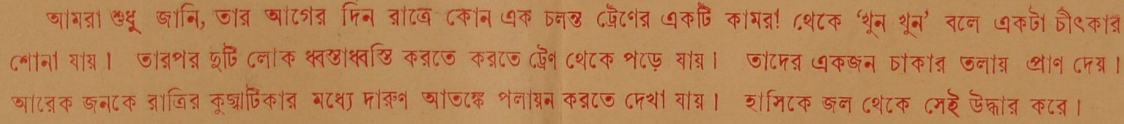 আমরা শুধু জানি, তার আগের দিন রাত্রে কোন এক চলন্ত ট্রেণের একটি কামরা থেকে ‘খুন খুন’ বলে একটা চীৎকার
শোনা যায়। তারপর দুটি লোক ধ্বস্তাধ্বস্তি করতে করতে ট্রেন থেকে পড়ে যায়। তাদের একজন চাকার তলায় প্রাণ দেয়।
আরেক জনকে রাত্রির কুজ্ঝটিকার মধ্যে দারুন আতঙ্কে পলায়ন করতে দেখা যায়। হাসিকে জল থেকে সেই উদ্ধার করে।